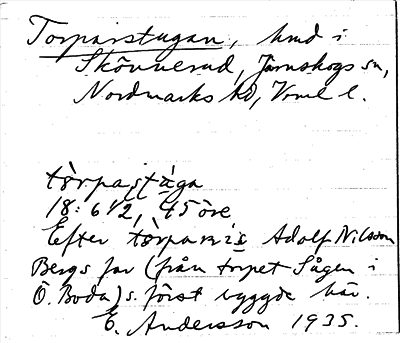 Torparstugan, hmd i
Skönnerud, Järnskogs sn,
Nordmarks hd, Vrml l.
tòrpastùga
18: 6 1/2, 45 öre
Efter tòrparn's Adolf Nilsson
Bergs far (från torpet Sågen i
Ö. Boda) s. först byggde här.
E. Andersson 1935.